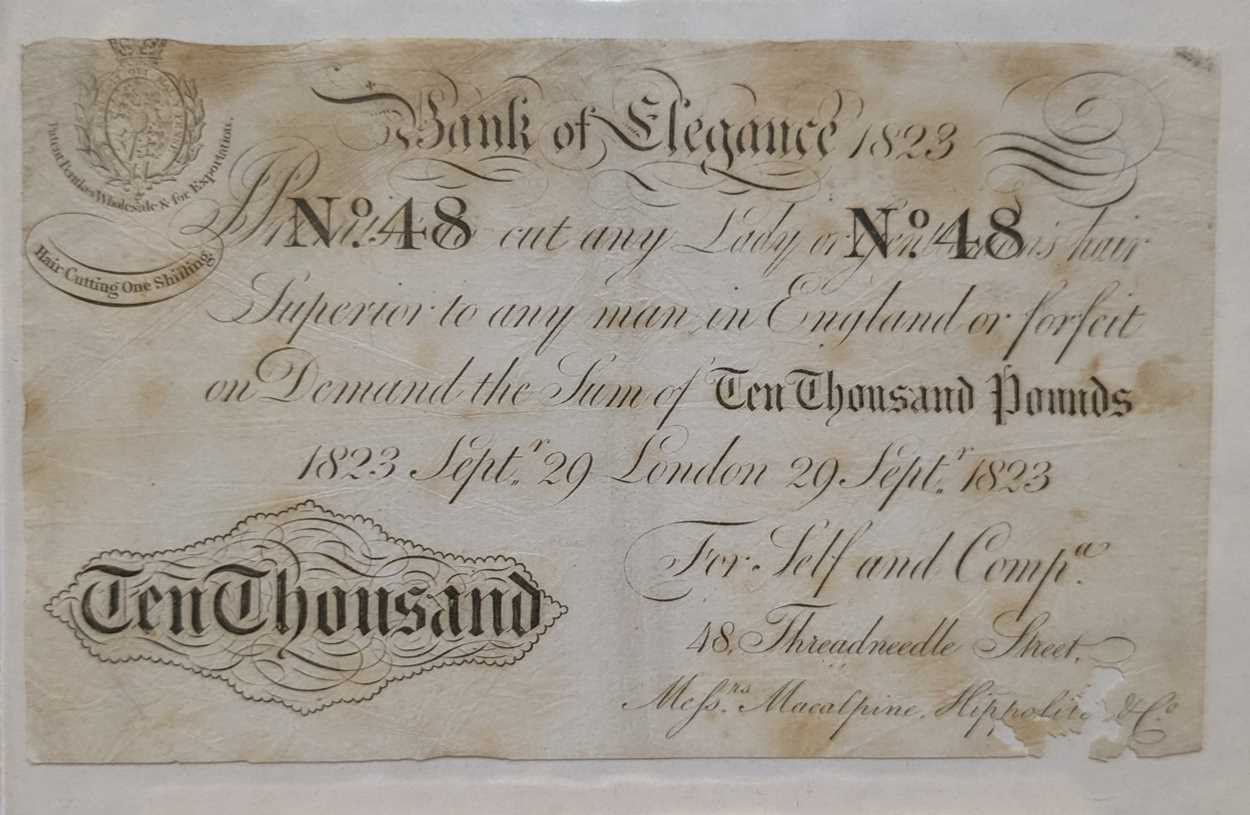 Bank of Elegance 1823
Patent Perukes Wholesale & for Exportation.
Hair Cutting One Shilling
No. 48 cut any Lady or No. 48 hair
Superior to any man in England or forfeit
on Demand the Sum of Ten Thousand Pounds
1823 Septr. 29 London 29 Septr. 1823
Ten Thousand
For Self and Compa.
48, Threadneedle Street.
Messrs. Macalpine, &Co